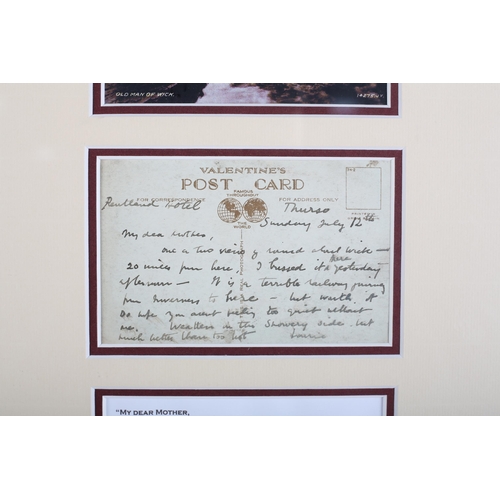 OLD MAN OF WICK.
VALENTINE'S
POST CARD
FAMOUS THROUGHOUT THE WORLD
FOR CORRESPONDENCE
FOR ADDRESS ONLY
Pentland Hotel
Thurso
Sunday July 12th
My dear Mother,
one or two views of round about Wick —
20 miles from here. I passed it here yesterday
afternoon — It is a terrible railway journey
from Inverness to here — but worth it
Do hope you aren't feeling too quiet without
me. Weather on the showery side, but
much better than too hot
"MY DEAR MOTHER,